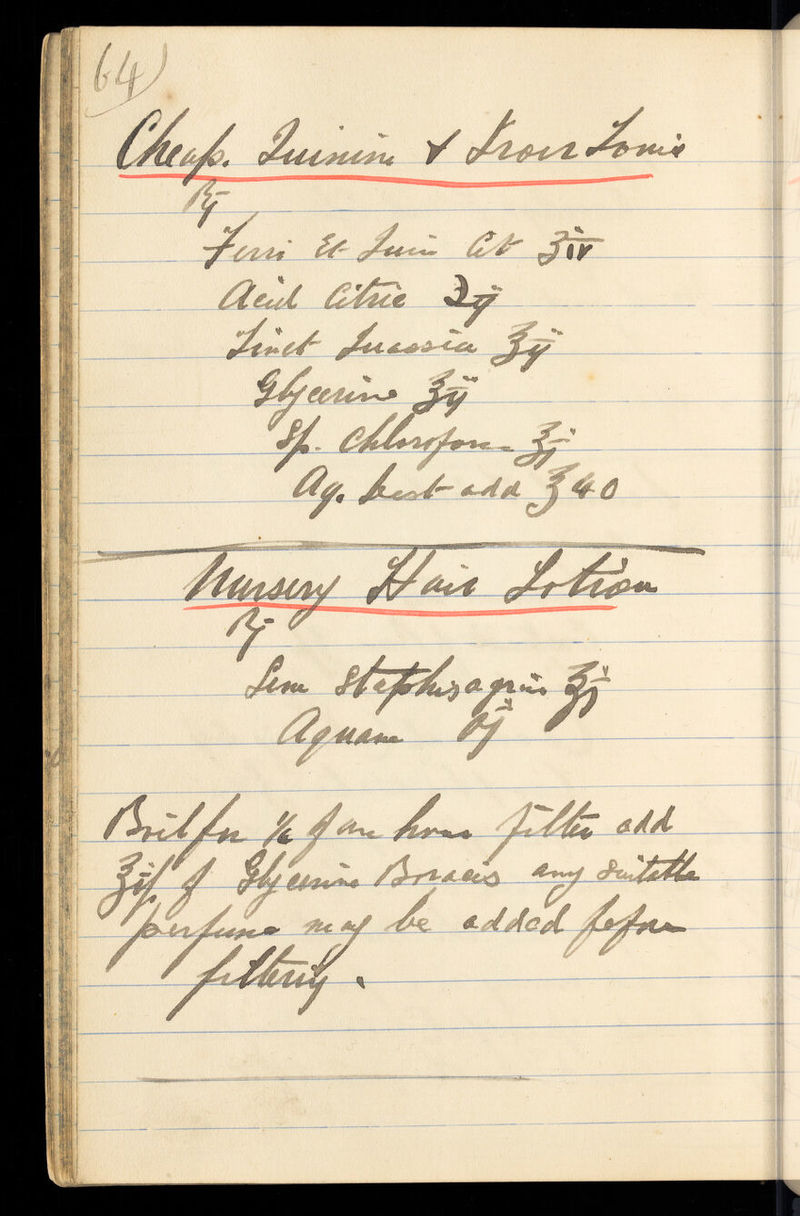 64)
Cheap. Quinine & Iron Tonic
℞
Ferri Et Quin Cit ʒiv
Acid Citric ℈ij
Tinct Quassia ʒij
Glycerine ʒij
Sp. Chloroform ʒj
Aq. best add ℥40
Nursery Hair Lotion
℞
Sem Staphisagria ʒj
Aquam Oj
Boil for ½ of an hour filter add
of Glycerine Boracis any suitable
perfume may be added before
filtering.